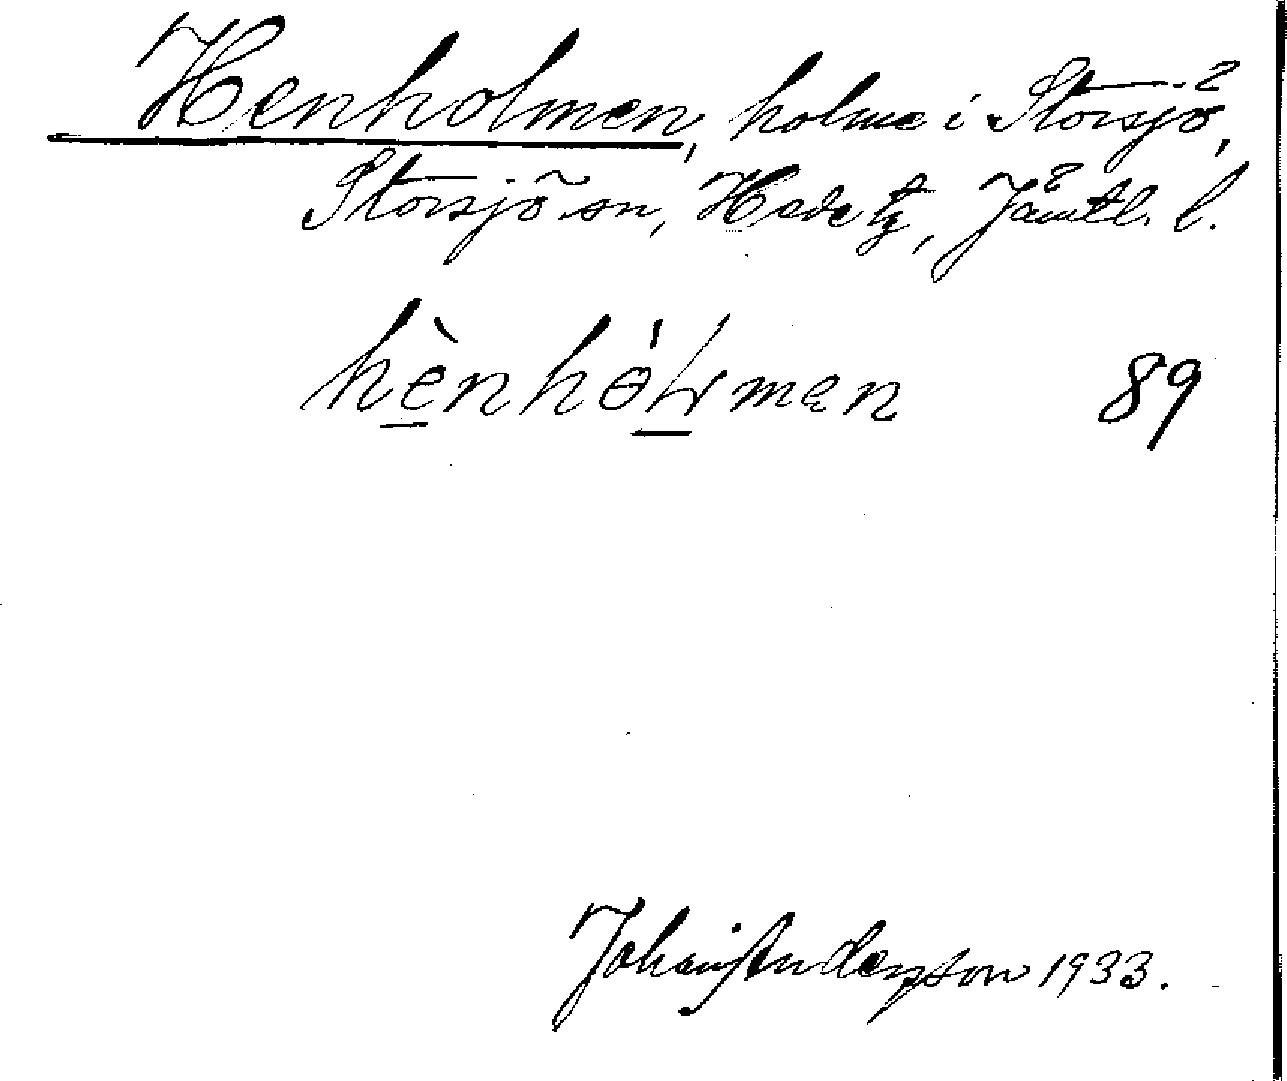 Henholmen, holme i Storsjö,
Storsjö sn, Hede tg, Jämtl. l.
hènhòlmen 89
Johan Anderzson 1933.